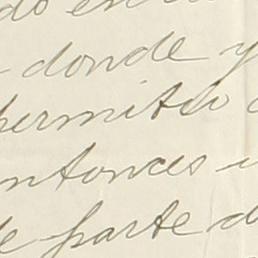 do
donde y
permitió
entonces
de parte d